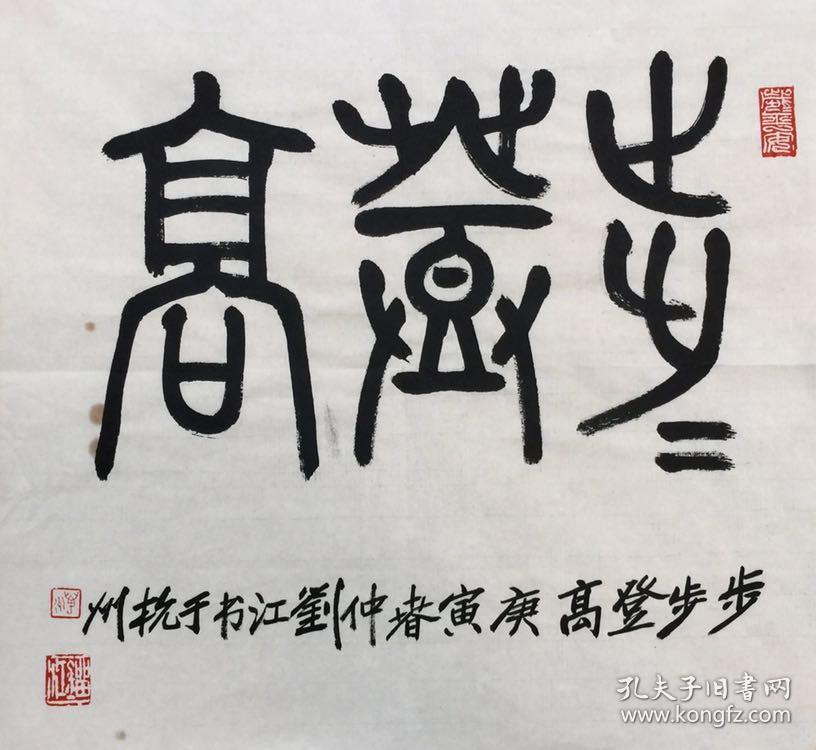 步〻登高
步步登高 庚寅春仲劉江书于杭州
孔夫子旧書网
www.kongfz.com